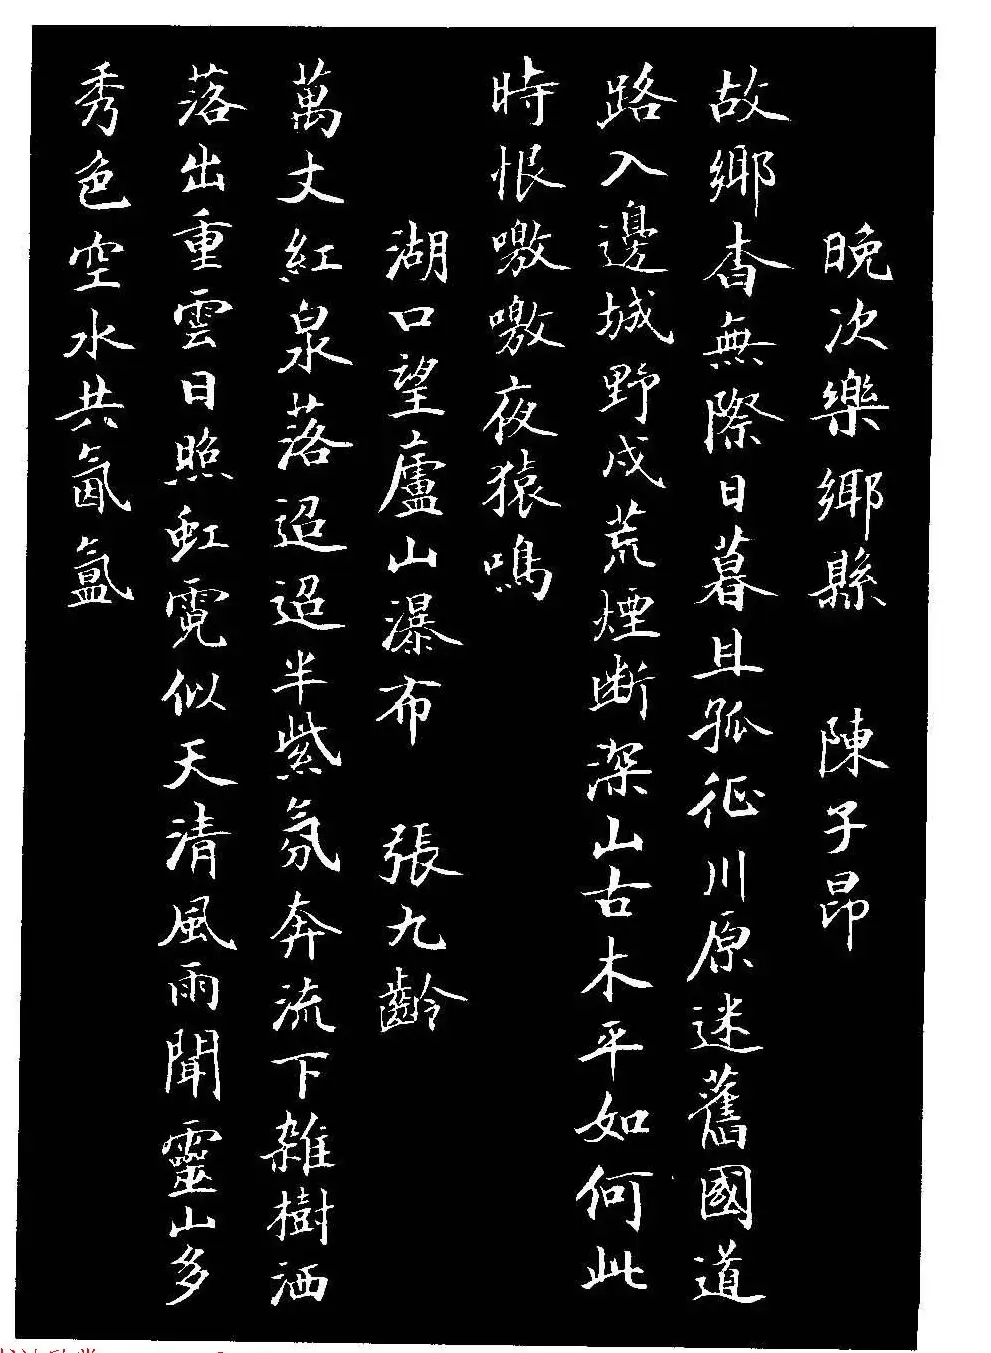 晚次樂鄉縣 陳子昂
故鄉杳無際日暮且孤征川原迷舊國道
路入邊城野戍荒煙斷深山古木平如何此
時恨噭噭夜猿鳴
湖口望廬山瀑布 張九齡
萬丈紅泉落迢迢半紫氛奔流下雜樹洒
落出重雲日照虹霓似天清風雨聞靈山多
秀色空水共氤氳